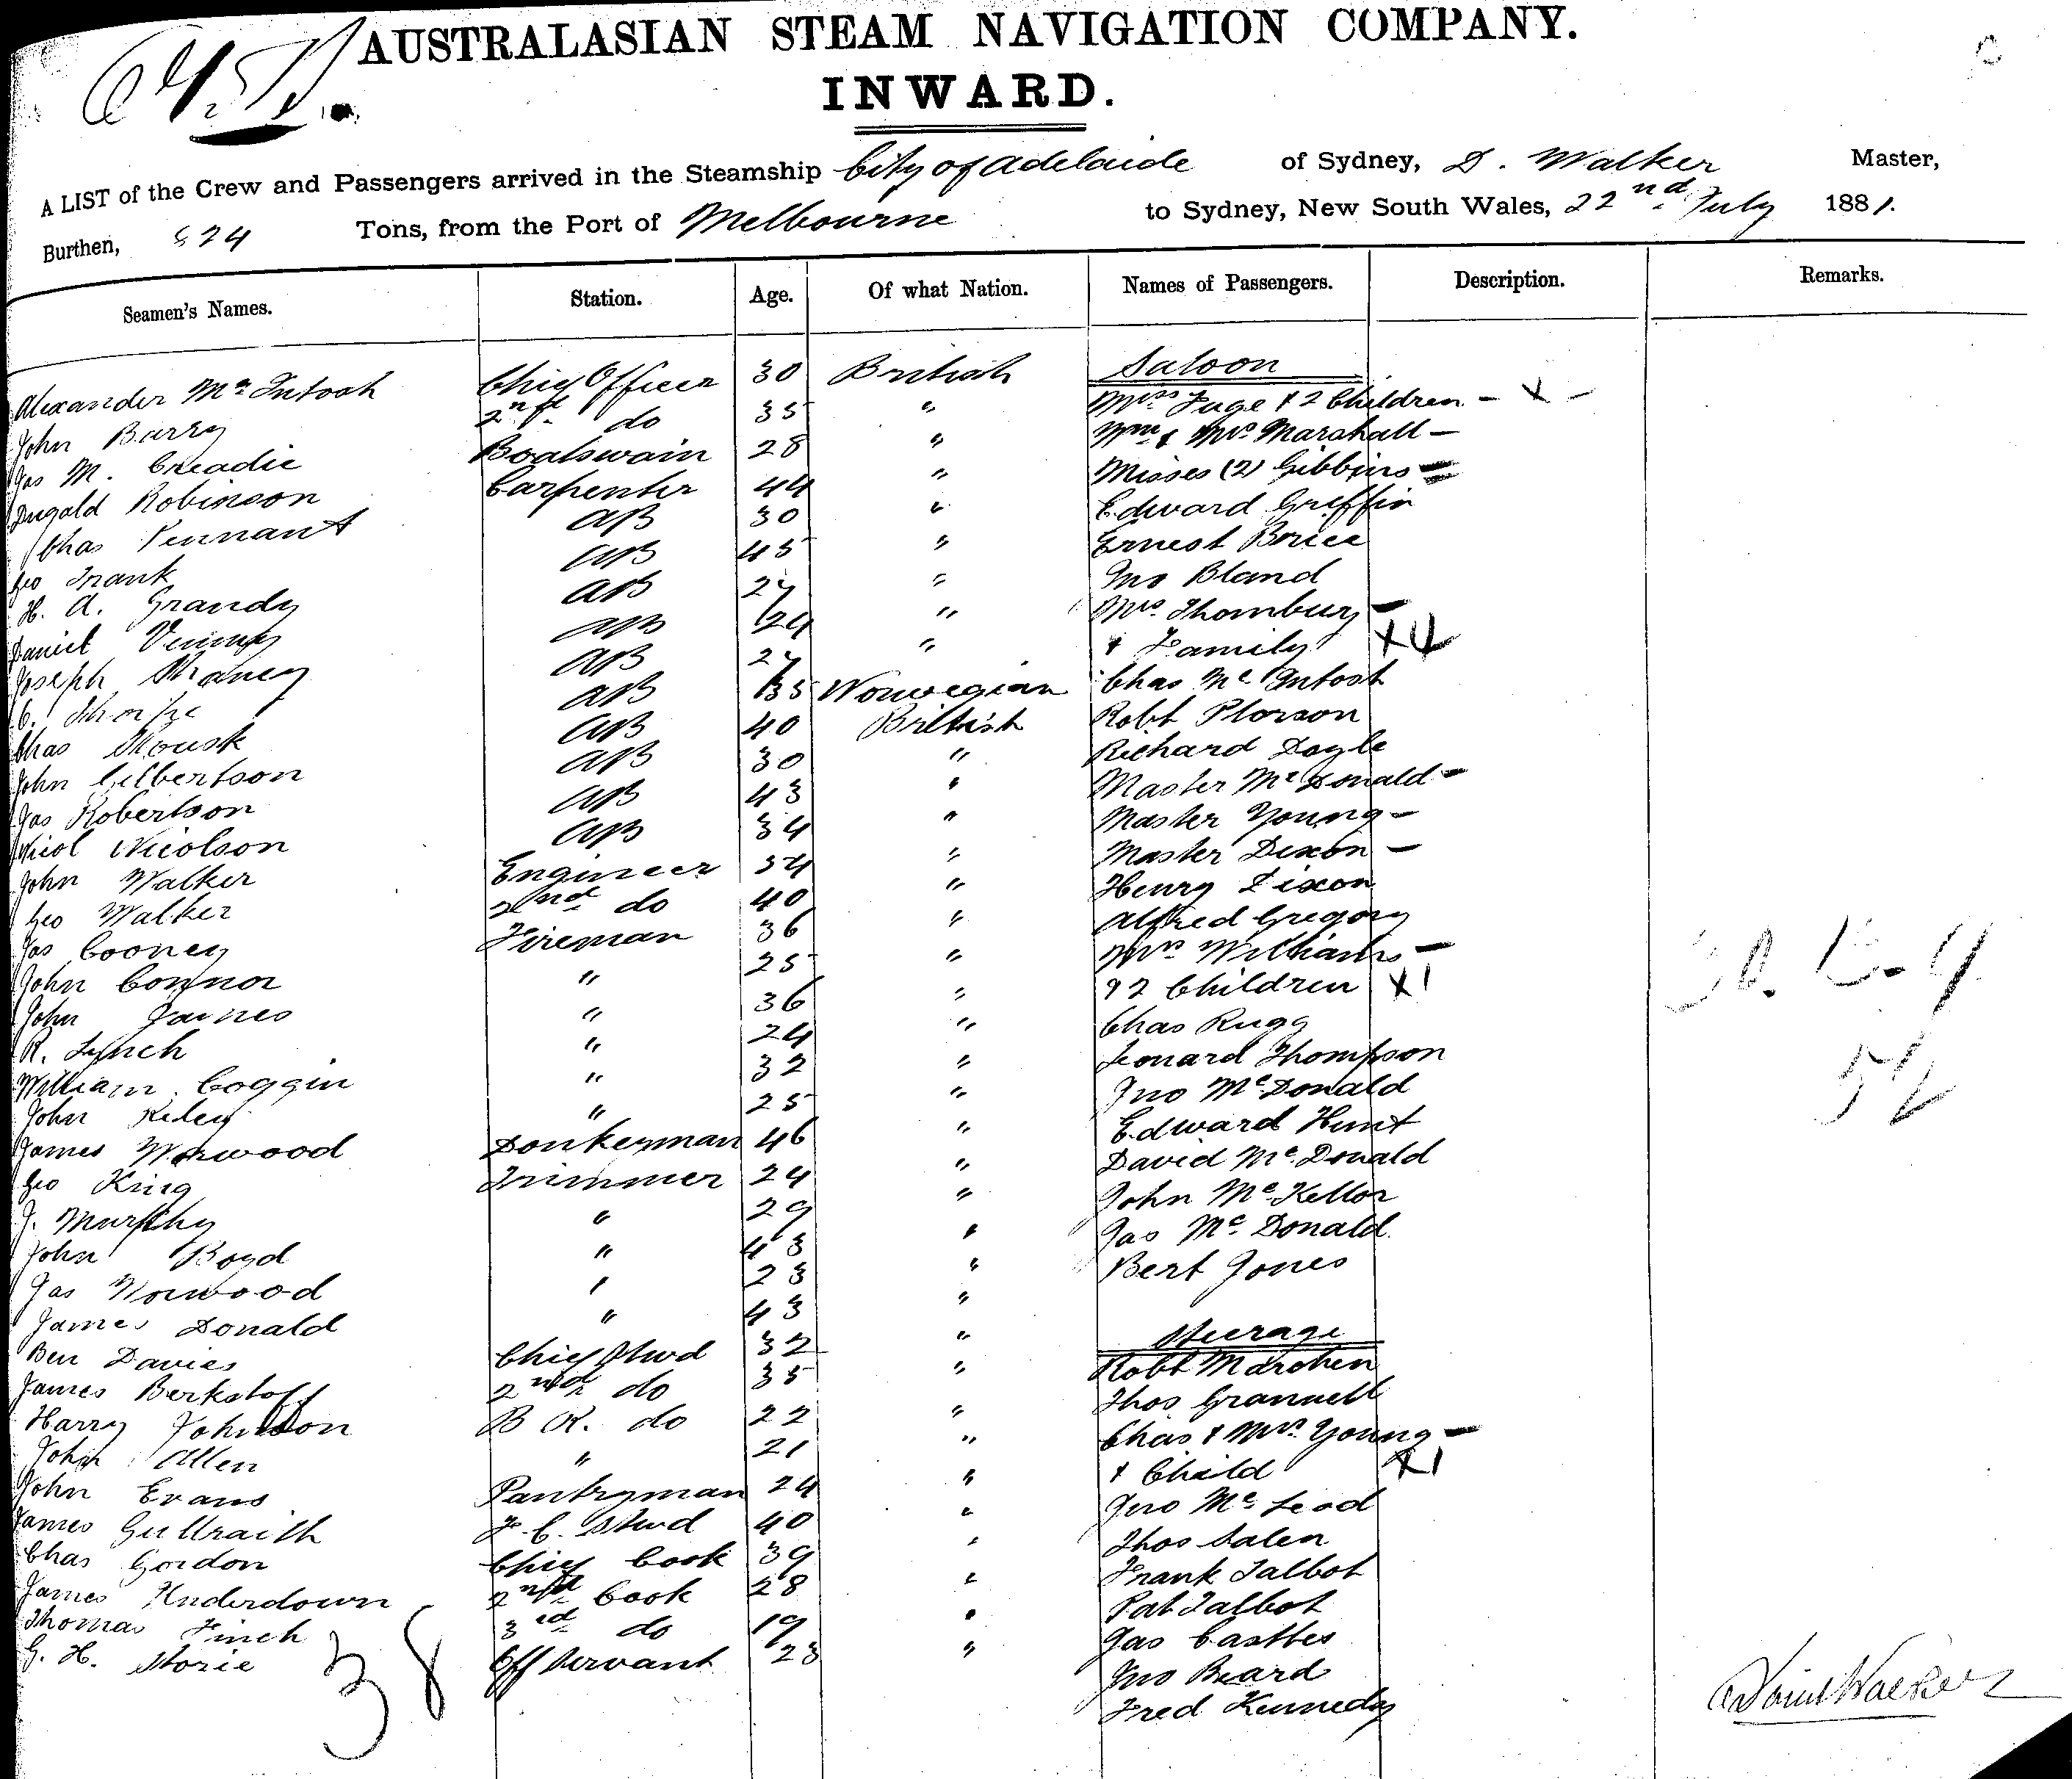 AUSTRALASIAN STEAM NAVIGATION COMPANY.
INWARD.
A LIST of the Crew and Passengers arrived in the Steamship City of Adelaide of Sydney, D. Walker Master,
Burthen, 824 Tons, from the Port of Melbourne to Sydney, New South Wales, 22nd July 1881.
Seamen's Names. Station. Age. Of what Nation. Names of Passengers. Description. Remarks.
Saloon
Alexander McIntosh Chief Officer 30 British Mrs Fuge & 2 Children - X -
John Barry 2nd do 35 " Wm & Mrs Marshall -
Jas M. Creadie Boatswain 28 " Misses (2) Gibbins
Dugald Robinson Carpenter 44 " Edward Griffin
Chas Pennant AB 30 " Ernest Brice
Geo Frank AB 45 " Jno Bland
H. A. Grandy AB 27 " Mrs Thornbury -
Daniel AB 24 " & Family X4
Joseph AB 27 " Chas McIntosh
C. AB 35 Norwegian Robt
Chas AB 40 British Richard Doyle
John Gilbertson AB 30 " Master McDonald -
Jas Robertson AB 43 " Master Young -
Nicol Nicolson AB 34 " Master Dixon -
John Walker Engineer 54 " Henry Dixon
Geo Walker 2nd do 40 " Alfred Gregory
Jas Cooney Fireman 36 " Mrs Williams -
John Connor " 25 " & 2 Children X1
John James " 36 " Chas Rugg
R. Lynch " 24 " Leonard Thompson
William Coggin " 32 " Jno McDonald
John Riley " 25 " Edward Hunt
James Norwood Donkeyman 46 " David McDonald
Geo King Trimmer 24 " John McKellor
J. Murphy " 29 " Jas McDonald
John Boyd " 43 " Bert Jones
Jas Norwood " 23 "
James Donald " 43 " Steerage
Ben Davies Chief Stwd 32 " Robt
James Berkstoff 2nd do 35 " Thos
Harry Johnson B R. do 22 " Chas & Mrs Young -
John Allen " 21 " & Child X1
John Evans Pantryman 24 " Jno McLeod
James F. C. Stwd 40 " Thos Salen
Chas Gordon Chief Cook 39 " Frank Talbot
James Underdown 2nd Cook 28 " Pat Talbot
Thomas Finch 3rd do 19 " Jas Castles
G. H. Storie Off Servant 23 " Jno Beard
Fred Kennedy
38
52
David Walker